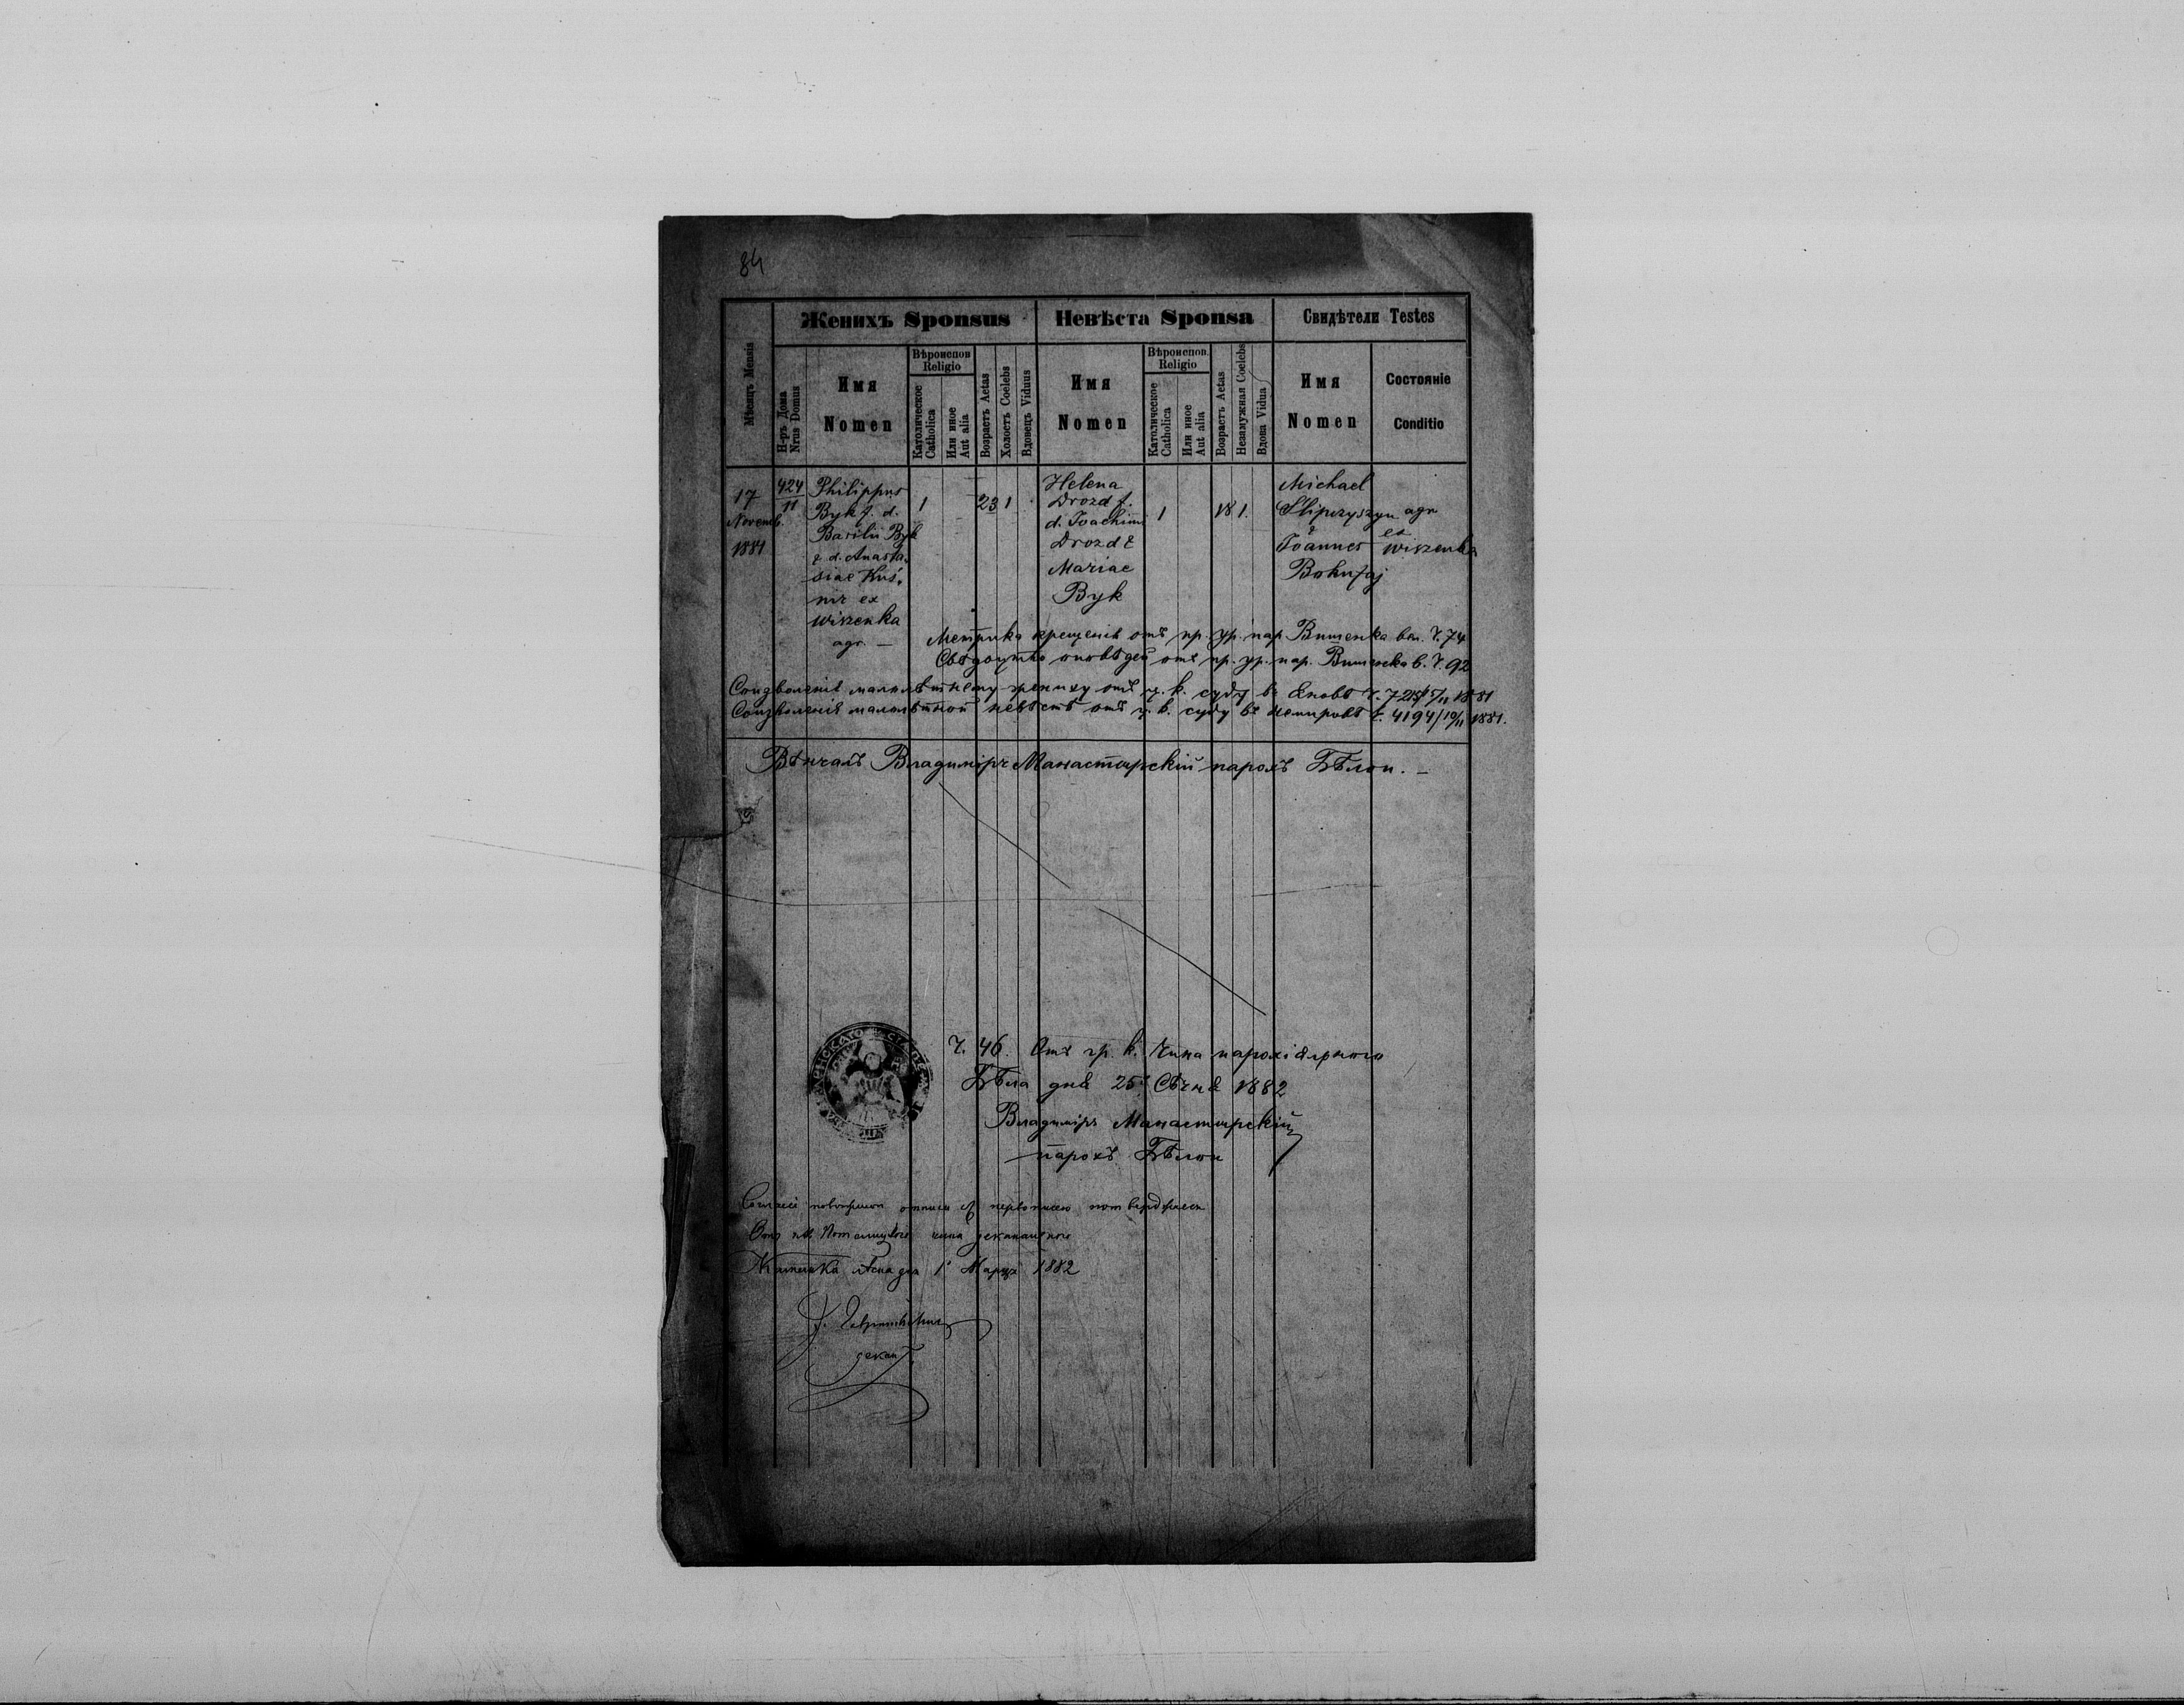 84
Женихъ Sponsus
Невѣста Sponsa
Свидѣтели Testes
Мѣсяцъ Mensis
Н-ръ Дома
Nrus Domus
Имя
Nomen
Вѣроиспов
Religio
Католическое
Catholica
Или иное
Aut alia
Возрастъ Aetas
Холостъ Coelebs
Вдовецъ Viduus
Имя
Nomen
Вѣроиспов.
Religio
Католическое
Catholica
Или иное
Aut alia
Возрастъ Aetas
Незамужная Coelebs
Вдова Vidua
Имя
Nomen
Состояніе
Conditio
17
Novemb.
1881
424
11
Philippus
Byk f. d.
Basilii Byk
& d. Anasta-
siae Kuś-
nir ex
Wiszenka
agr. —
1
23
1
Helena
Drozd f.
d. Joachimi
Drozd &
Mariae
Byk
1
18
1.
Michael
Slipczyszyn
&
Joannes
agr
ex
Wiszenka
Метрика крещенія отъ пр. ур. пар Вишенка вел. Ч. 74
оповѣдей отъ пр. ур. пар. Вишенка в. Ч. 92
Соизволеніе малолѣтнему жениху отъ ц. к. суду въ Яновѣ Ч. 5/11 1881
Соизволеніе малолѣтной невѣстѣ отъ ц. к. суду въ Немировѣ Ч. 4194/10/11 1881.
Вѣнчалъ Владиміръ Манастырскій парохъ Бѣлои. —
Ч. 46. Отъ гр. к. Чина парохіяльного
Бѣла дня 25 Сѣчня 1882
Владиміръ Манастырскій
парохъ Бѣлои
дня 1 Марта 1882
декан